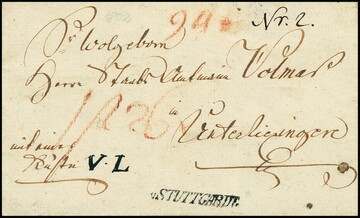 Nr. 2.
Sr Wolgeborn
Herrn Staabs Amtmann Volmar
in
Unterliezingen
mit einer
Kistin
V. L
v. STUTTGARDT